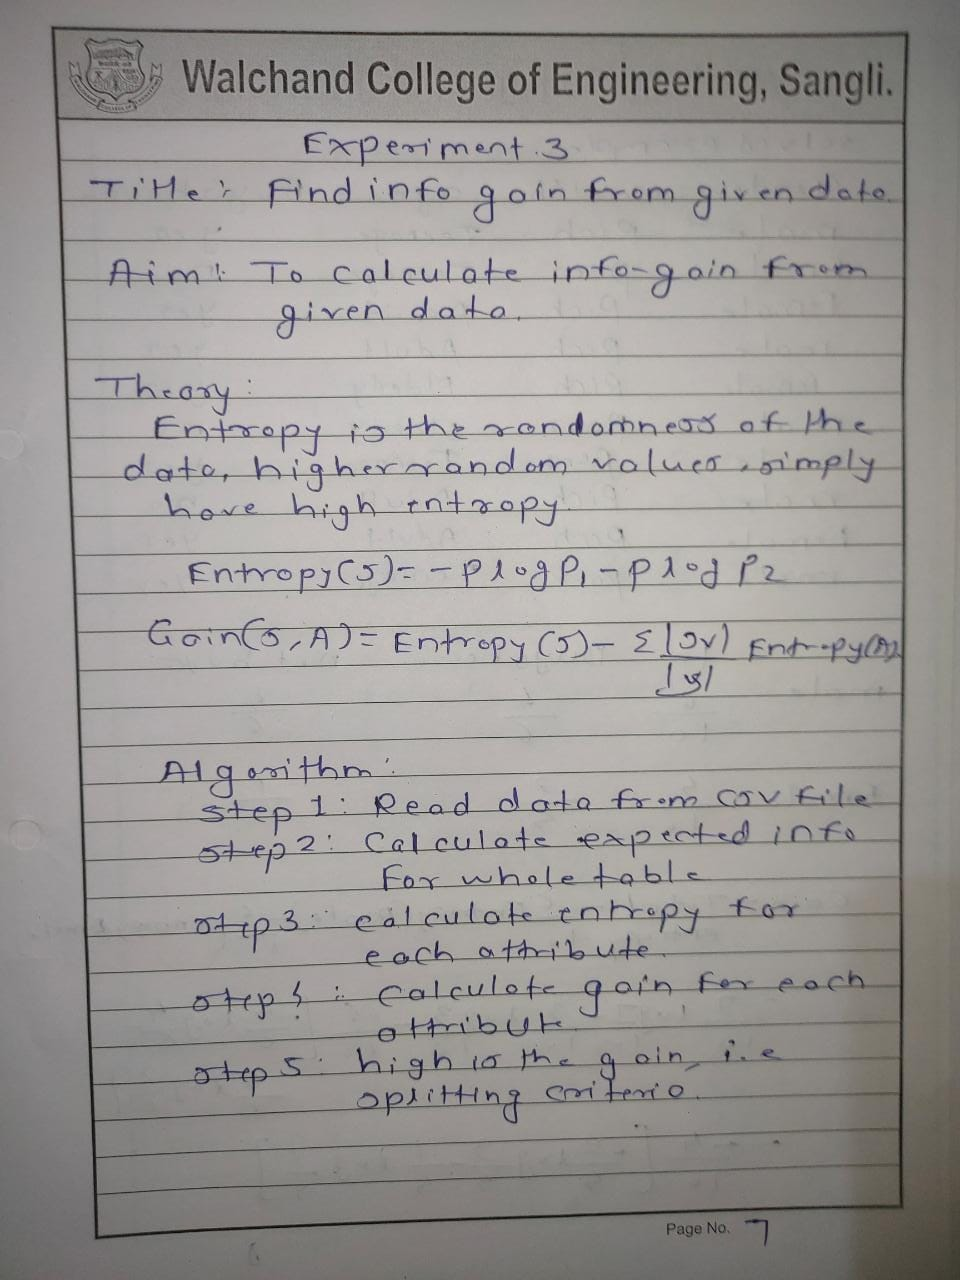 Walchand College of Engineering, Sangli.
Experiment.3
Title: Find info gain from given data.
Aim: To calculate info-gain from
given data.
Theory:
Entropy is the randomness of the
data, higher random values, simply
have high entropy.
Entropy(S)= -p log P1 - p log P2
Gain(S,A)= Entropy(S)- Σ |Sv| Entropy(A)
|S|
Algorithm:
step 1: Read data from csv file
step 2: Calculate expected info
for whole table
step 3: calculate entropy for
each attribute.
step 4: calculate gain for each
attribute
step 5: high is the gain, i.e
splitting criteria.
Page No. 7